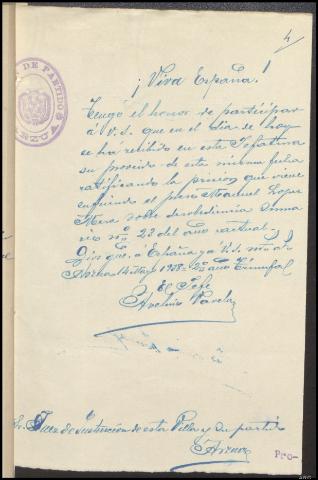 4
DE PARTIDO
ARZUA
¡Viva España!
Tengo el honor de participar
á V.S. que en el dia de hoy
se ha recibido en esta Jefatura
su proveido de esta misma fecha
ratificando la prision que viene
sufriendo el preso Manuel Lopez
sobre desobediencia suma
rio nº 22 del año actual
Dios gue. á España y á V.S. m. a.
Arzua 14 1938 - 2º año Triunfal
El Jefe
Avelino Varela
Sr. Juez de instrucción de esta Villa y su partido
Arzua
Pro-